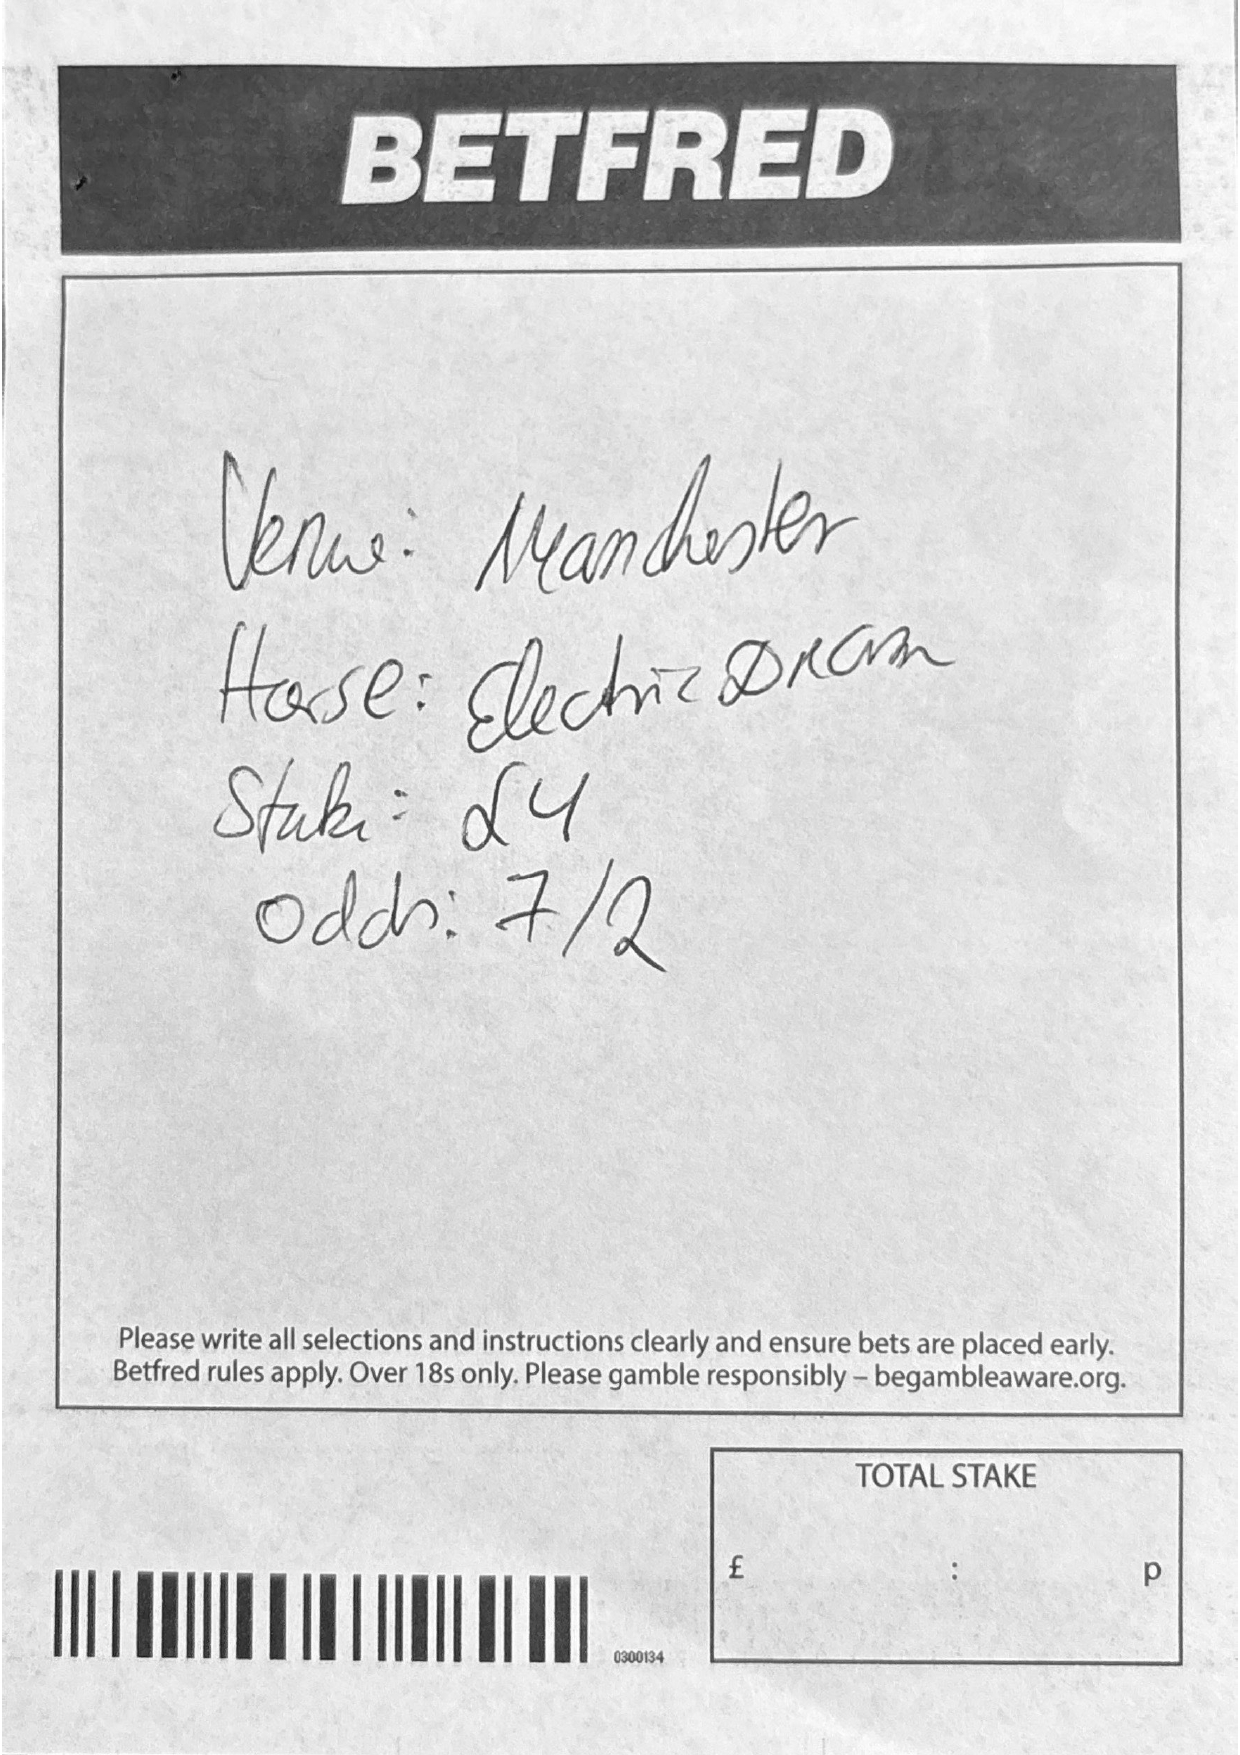 BETFRED
Venue: Manchester
Horse: Electric Dream
Stake: £4
Odds: 7/2
Please write all selections and instructions clearly and ensure bets are placed early.
Betfred rules apply. Over 18s only. Please gamble responsibly – begambleaware.org.
TOTAL STAKE
£ : p
0300134